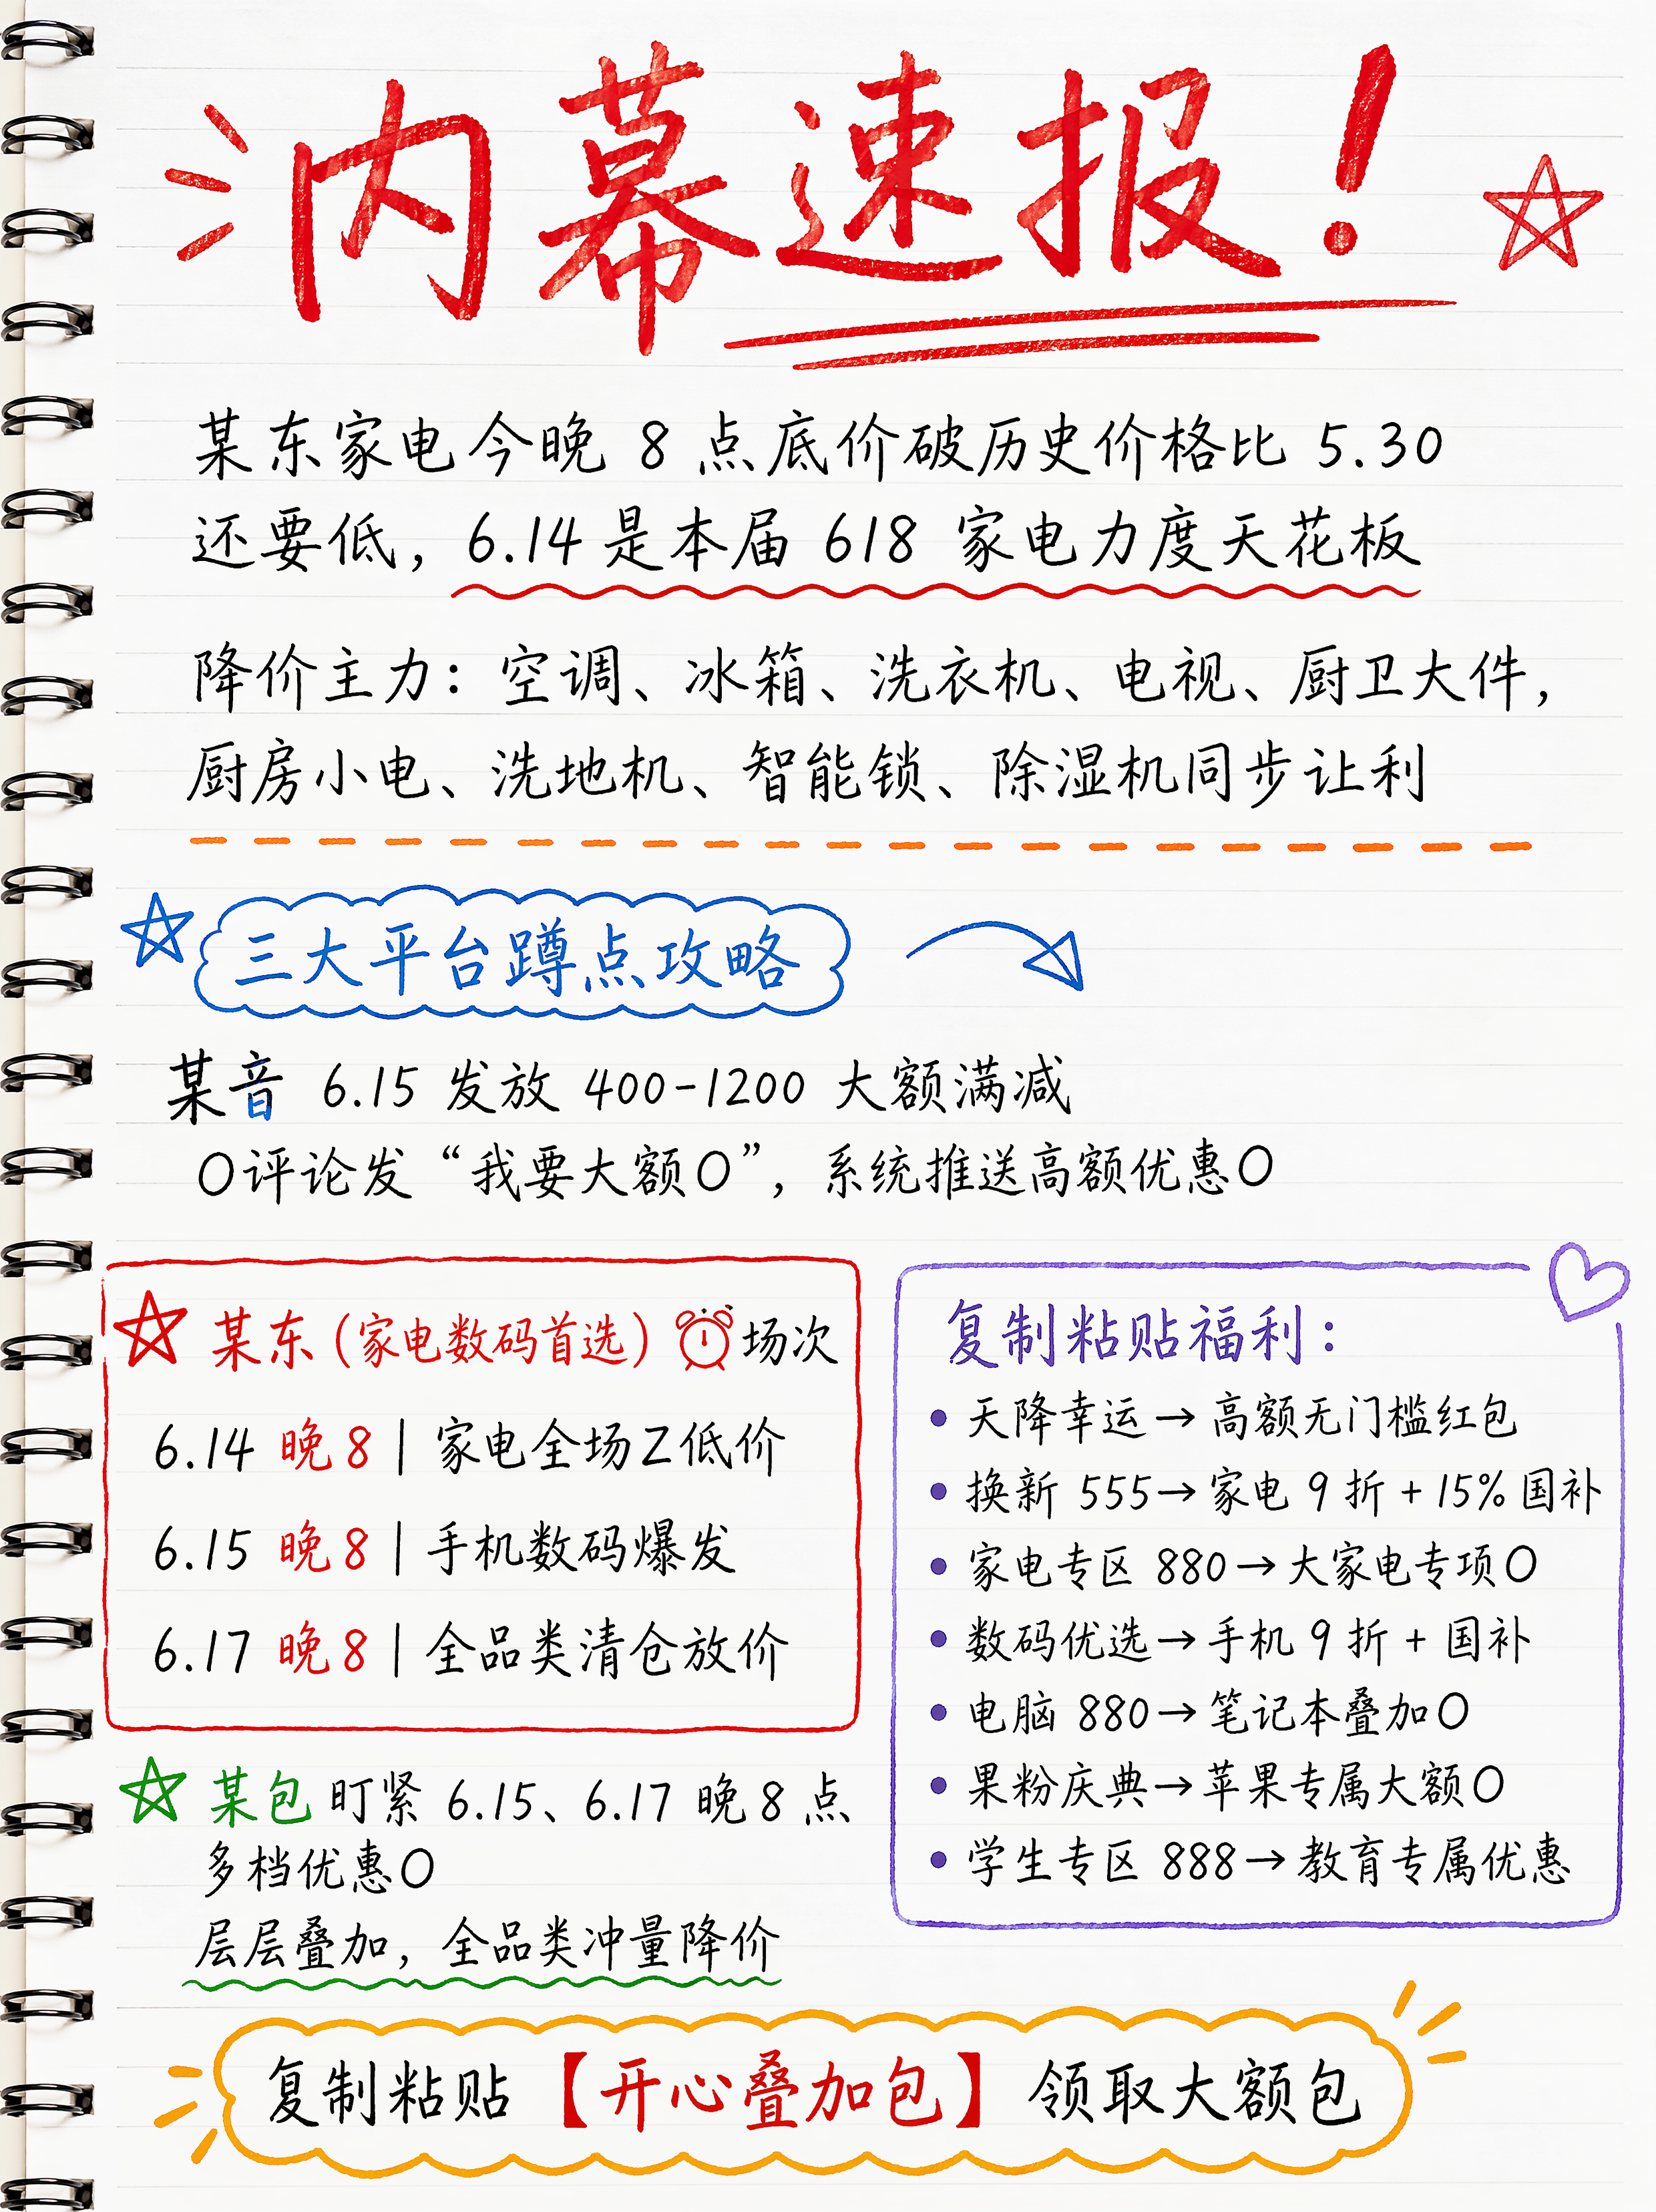 内幕速报！
某东家电今晚 8 点底价破历史价格比 5.30
还要低，6.14 是本届 618 家电力度天花板
降价主力：空调、冰箱、洗衣机、电视、厨卫大件，
厨房小电、洗地机、智能锁、除湿机同步让利
三大平台蹲点攻略
某音 6.15 发放 400-1200 大额满减
O评论发“我要大额O”，系统推送高额优惠O
某东（家电数码首选）场次
6.14 晚8｜家电全场Z低价
6.15 晚8｜手机数码爆发
6.17 晚8｜全品类清仓放价
某包 盯紧 6.15、6.17 晚8点
多档优惠O
层层叠加，全品类冲量降价
复制粘贴福利：
• 天降幸运→高额无门槛红包
• 换新 555→家电 9 折 + 15% 国补
• 家电专区 880→大家电专项O
• 数码优选→手机 9 折 + 国补
• 电脑 880→笔记本叠加O
• 果粉庆典→苹果专属大额O
• 学生专区 888→教育专属优惠
复制粘贴【开心叠加包】领取大额包